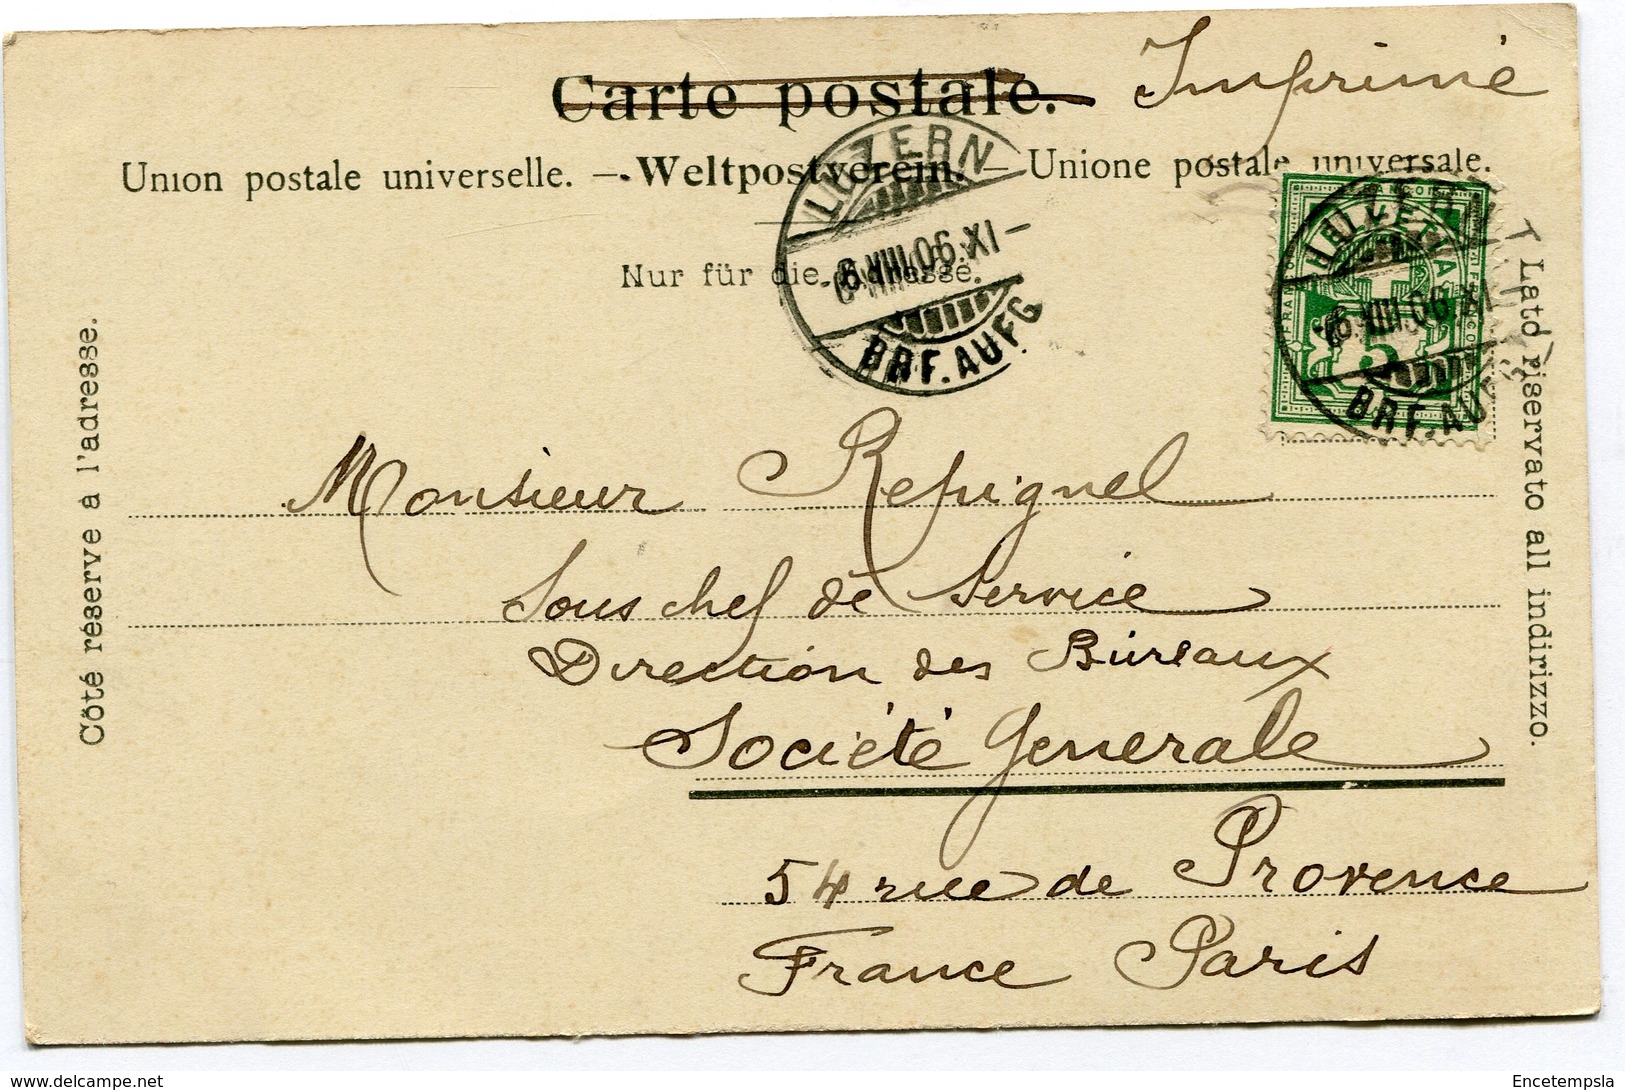 Carte postale. Imprimé
Union postale universelle. — Weltpostverein. — Unione postale universale.
Nur für die Adresse.
LUZERN
6.VIII.06.XI-
BRF.AUFG.
FRANCO
HELVETIA
5
LUZERN
6.VIII.06.XI
BRF.AUFG.
Côté réservé à l'adresse.
Lato riservato all indirizzo.
Monsieur Repignel
Sous chef de Service
Direction des Bureaux
Société Generale
54 rue de Provence
France Paris
delcampe.net
Encetempsla